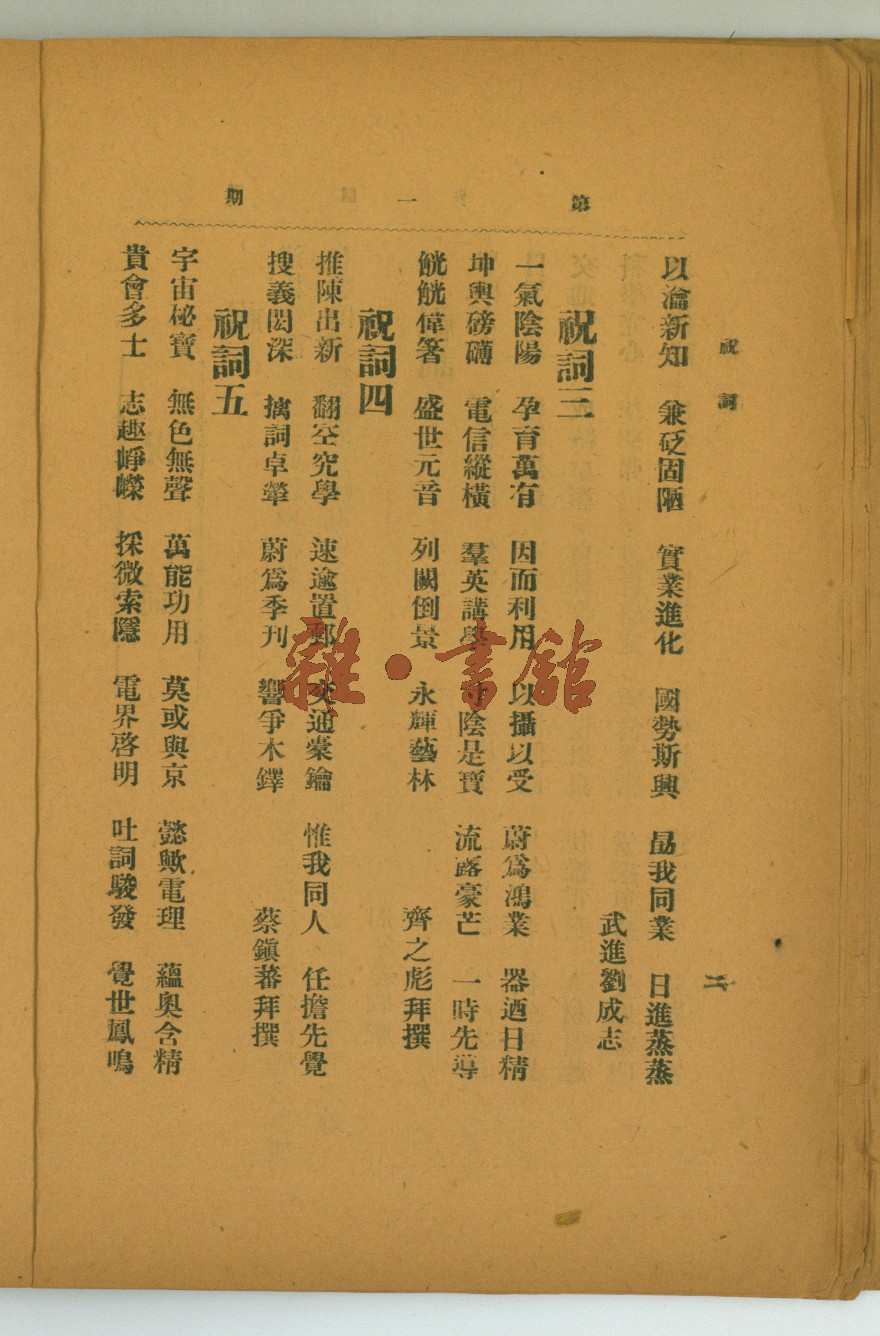 祝詞
二
第一期
以瀹新知　兼砭固陋　實業進化　國勢斯興　勗我同業　日進蒸蒸
武進劉成志
祝詞三
一氣陰陽　孕育萬有　因而利用　以攝以受　蔚爲鴻業　器迺日精
坤輿磅礴　電信縱橫　羣英講學　寸陰是寶　流露豪芒　一時先導
觥觥偉箸　盛世元音　列闕倒景　永輝藝林
齊之彪拜撰
祝詞四
推陳出新　翻空究學　速逾置郵　交通橐鑰　惟我同人　任擔先覺
搜義閎深　摛詞卓犖　蔚爲季刋　響爭木鐸
蔡鎭蕃拜撰
祝詞五
宇宙秘寶　無色無聲　萬能功用　莫或與京　懿歟電理　蘊奧含精
貴會多士　志趣崢嶸　探微索隱　電界啓明　吐詞駿發　覺世鳳鳴
雜·書館